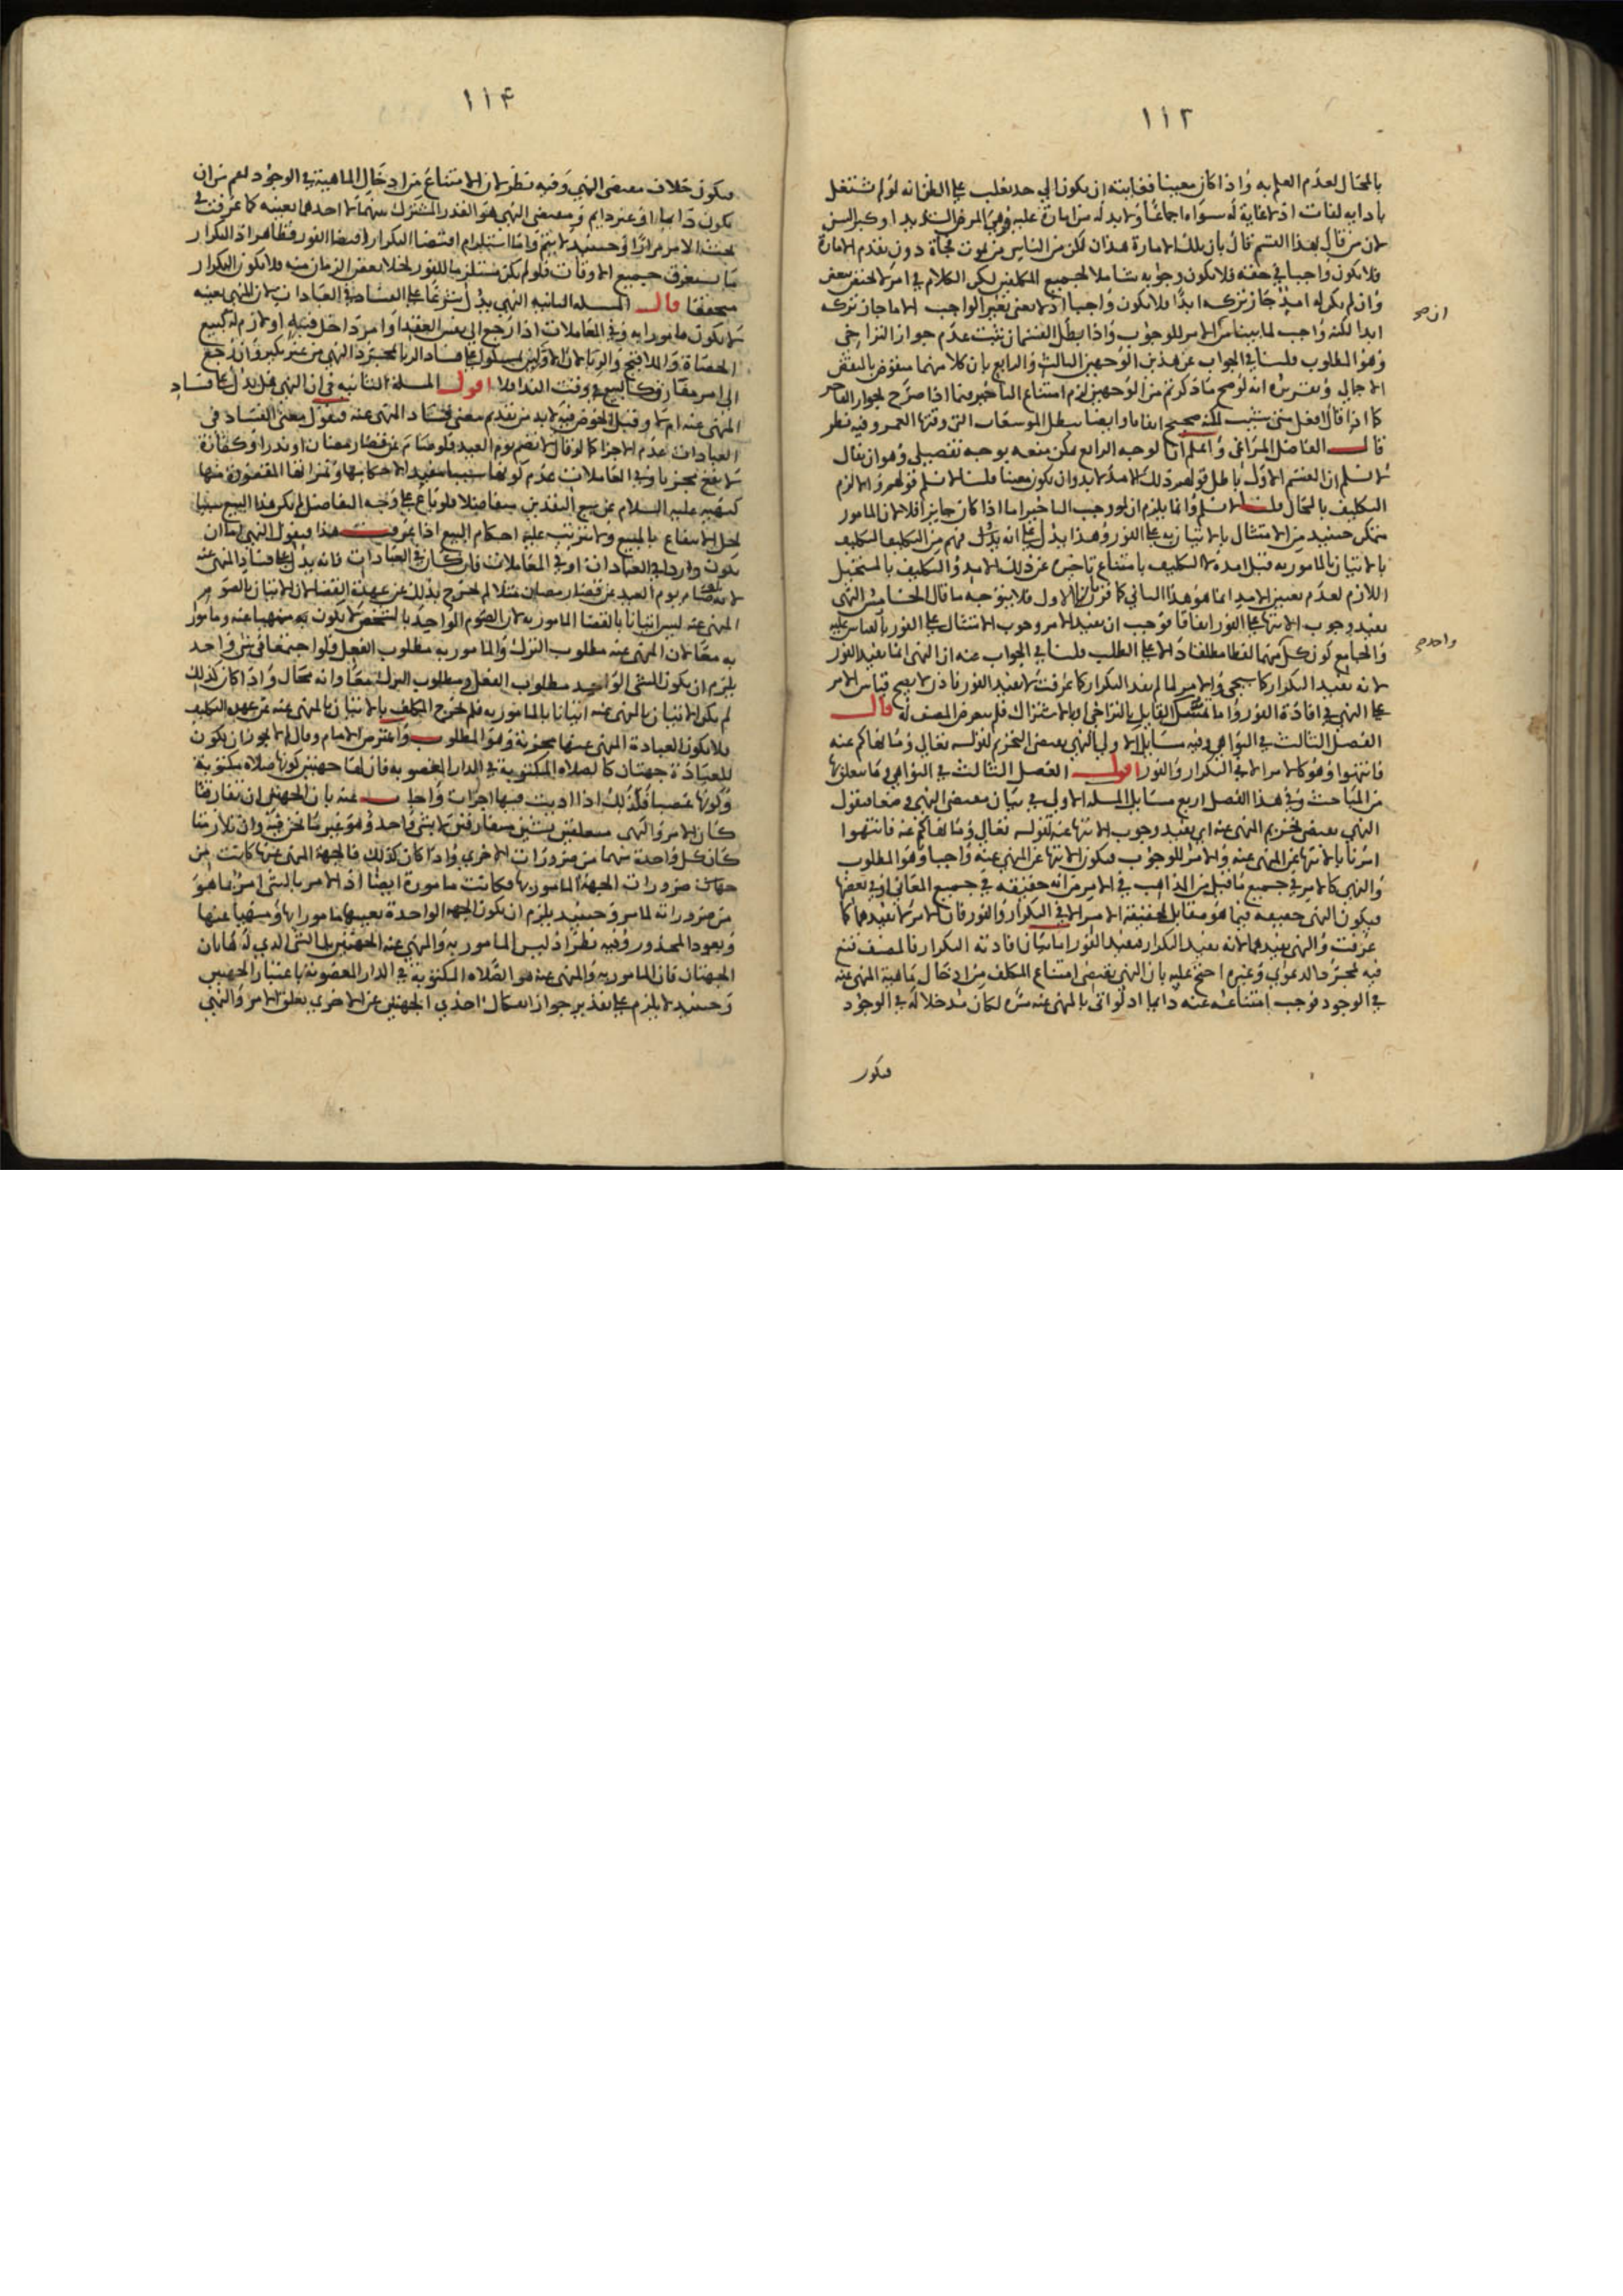 ١١٢
بالمحال لعدم العلم به واذا كان معينا فغايته ان يكون الى حد يغلب على الظن انه لو لم يشتغل
بادايه لفات اذ لا غاية له سواه اجماعا ولا بد له من امارة عليه وهي المرض الشديد او كبر السن
لان من قال بهذا القسم قال بان تلك الامارة هذان لكن من الناس من يموت فجأة دون تقدم الامارة
فلا يكون واجبا في حقه فلا يكون وجوبه شاملا لجميع المكلفين لكن الكلام في امر لا يختص ببعض
وان لم يكن له امد جاز تركه ابدا فلا يكون واجبا اذ لا نعني بغير الواجب الا ما جاز تركه
ابدا لكنه واجب لما بينا من ان الامر للوجوب واذا بطل القسمان ثبت عدم جواز التراخي
وهو المطلوب قلنا في الجواب عن هذين الوجهين الثالث والرابع بان كلا منهما منقوض بالنقض
الاجمالي وتقريره انه لو صح ما ذكرتم من الوجهين لزم امتناع التاخير فيما اذا صرح بجواز التاخير
كما اذا قال افعل متى شئت لكنه صحيح اتفاقا وايضا يبطل بالموسعات التي وقتها العمر وفيه نظر
قال الفاضل المراغي واعلم ان الوجه الرابع يمكن منعه بوجه تفصيلي وهو ان يقال
لا نسلم ان القسم الاول باطل قولهم ذلك الامد لا بد وان يكون معينا قلنا لا نسلم قولهم والا لزم
التكليف بالمحال قلنا لا نسلم وانما يلزم ان لو وجب التاخير اما اذا كان جايزا فلا لان المامور
متمكن حينئذ من الامتثال بالاتيان به على الفور وهذا يدل على انه
بالاتيان بالمامور به قبل امده لا التكليف بامتناع تاخيره عن ذلك الامد والتكليف بالمستحيل
اللازم لعدم تعيين الامد انما هو هذا الثاني كما قرر لا الاول فلا يتوجه ما قال الخامس النهي
يفيد وجوب الانتهاء على الفور اتفاقا فوجب ان يفيد الامر وجوب الامتثال على الفور بالقياس عليه
والجامع كون كل منهما لفظا مطلقا دالا على الطلب قلنا في الجواب عنه ان النهي انما يفيد الفور
لانه يفيد التكرار كما سيجي والامر لما لم يفد التكرار كما عرفت لا يفيد الفور فاذن لا يصح قياس الامر
على النهي في افادة الفور واما متمسك القايل بالتراخي او بالاشتراك فلم يتعرض المصنف له قال
الفصل الثالث في النواهي وفيه مسايل الاولى النهي يقتضي التحريم لقوله تعالى وما نهاكم عنه
فانتهوا وهو كالامر الا في التكرار والفور اقول الفصل الثالث في النواهي وما يتعلق بها
من المباحث وفي هذا الفصل اربع مسايل المسلة الاولى في بيان مقتضى النهي وضعا فنقول
النهي يقتضي تحريم المنهي عنه اي يفيد وجوب الانتهاء عنه لقوله تعالى وما نهاكم عنه فانتهوا
امرنا بالانتهاء عن المنهي عنه والامر للوجوب فيكون الانتهاء عن المنهي عنه واجبا وهو المطلوب
والنهي كالامر في جميع ما قيل من المذاهب في الامر من انه حقيقة في جميع المعاني او في بعضها
فيكون النهي حقيقة فيما هو مقابل لحقيقة الامر الا في التكرار والفور فان الامر لا يفيدهما كما
عرفت والنهي يفيدهما لانه يفيد التكرار فيفيد الفور اما بيان افادته التكرار فالمصنف قنع
فيه بمجرد الدعوى وغيره احتج عليه بان النهي يقتضي امتناع المكلف من ادخال ماهية المنهي عنه
في الوجود فوجب امتناعه عنه دايما اذ لو اتى بالمنهي عنه مرة لكان مدخلا له في الوجود
فيكون
واحد
١١٤
فيكون خلاف مقتضى النهي وفيه نظر لان الامتناع من ادخال الماهية في الوجود اعم من ان
يكون دايما او غير دايم ومقتضى النهي هو القدر المشترك بينهما لا احدهما بعينه كما عرفت في
بحث الامر وحينئذ لا يتم واما استلزام اقتضا التكرار اقتضا الفور فظاهر اذ التكرار
ما يستغرق جميع الاوقات فلو لم يكن مستلزما للفور لخلا بعض الزمان منه فلا يكون التكرار
متحققا قال المسلة الثانية النهي يدل شرعا على الفساد في العبادات لان المنهي بعينه
لا يكون مامورا به وفي المعاملات اذا رجع الى نفس العقد او امر داخل فيه او لازم له كبيع
الحصاة والملاقيح والربا لان الاولين تمسكوا على فساد الربا بمجرد النهي من غير نكير وان رجع
الى امر مقارن كالبيع في وقت الندا فلا اقول المسلة الثانية في ان النهي هل يدل على فساد
المنهي عنه ام لا وقبل الخوض فيه لا بد من تقديم معنى فساد المنهي عنه فنقول معنى الفساد في
العبادات عدم الاجزا كما لو قال لا تصم يوم العيد فلو صام عن قضا رمضان او نذر او كفارة
لا يقع مجزيا وفي المعاملات عدم كونها سببا مفيدا لاحكامها وثمراتها المقصودة منها
كنهيه عليه السلام عن بيع النقدين متفاضلا فلو باع على وجه التفاضل لم يكن هذا البيع سببا
لحل الانتفاع بالمبيع ولا تترتب عليه احكام البيع اذا عرفت هذا فنقول النهي اما ان
يكون واردا في العبادات او في المعاملات فان كان في العبادات فانه يدل على فساد المنهي عنه
لانه لو صام يوم العيد عن قضا رمضان مثلا لم يخرج بذلك عن عهدة القضا لان الاتيان بالصوم
المنهي عنه ليس اتيانا بالقضا المامور به لان الصوم الواحد بالشخص لا يكون منهيا عنه ومامورا
به معا لان المنهي عنه مطلوب الترك والمامور به مطلوب الفعل فلو اجتمعا في شي واحد
يلزم ان يكون الشي الواحد مطلوب الفعل ومطلوب الترك معا وانه محال واذا كان كذلك
لم يكن الاتيان بالمنهي عنه اتيانا بالمامور به فلم يخرج المكلف بالاتيان بالمنهي عنه عن عهدة التكليف
فلا تكون العبادة المنهي عنها مجزية وهو المطلوب واعترض الامام وقال لم لا يجوز ان يكون
للعبادة جهتان كالصلاه المكتوبة في الدار المغصوبه فان لها جهتين كونها صلاة مكتوبة
وكونها غصبا فلذلك اذا اديت فيها اجزات واجاب عنه بان الجهتين ان تفارقتا
كان الامر والنهي متعلقين بشيئين متفارقين لا بشي واحد وهو غير ما نحن فيه وان تلازمتا
كان كل واحدة منهما من ضرورات الاخرى واذا كان كذلك فالجهة المنهي عنها كانت من
ضرورات الجهة المامور بها فكانت مامورة ايضا اذ الامر بالشي امر بما هو
من ضروراته لما مر وحينئذ يلزم ان يكون الجهة الواحدة بعينها مامورا بها ومنهيا عنها
ويعود المحذور وفيه نظر اذ ليس المامور به والمنهي عنه الجهتين بل الشي الذي له هاتان
الجهتان فان المامور به والمنهي عنه هو الصلاه المكتوبة في الدار المغصوبة باعتبار الجهتين
وحينئذ لا يلزم على تقدير جواز انفكاك احدى الجهتين عن الاخرى تعلق الامر والنهي